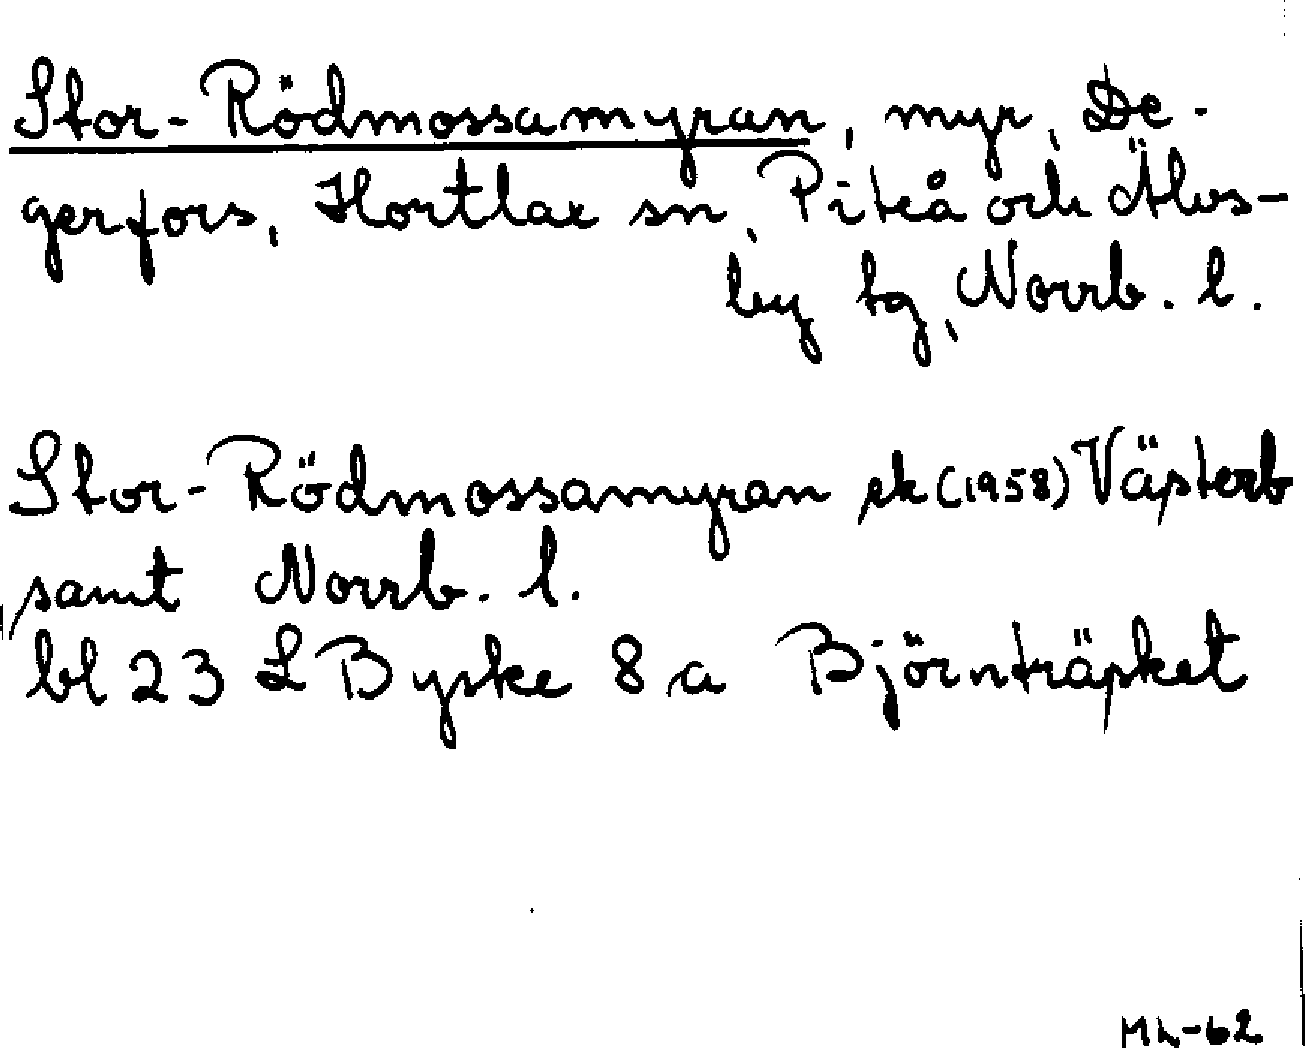 Stor-Rödmossamyran, myr, De-
gerfors, Hortlax sn, Piteå och Älvs-
by tg, Norrb. l.
Stor-Rödmossamyran ek (1958) Västerb
samt Norrb. l.
bl 23 L Byske 8 a Björnträsket